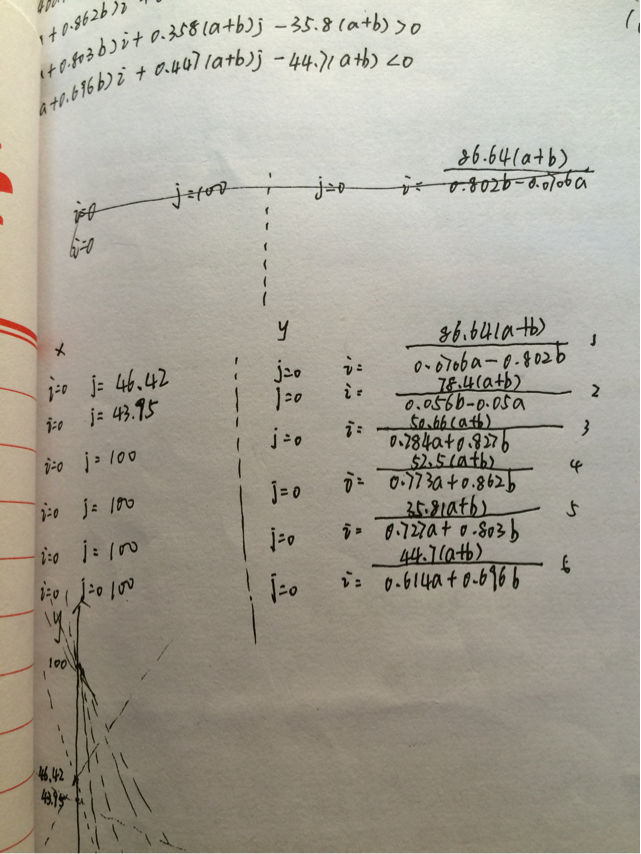 +0.862b)i
+0.803b)i+0.358(a+b)j-35.8(a+b)>0
a+0.696b)i+0.447(a+b)j-44.7(a+b)<0
86.64(a+b)
i=0 j=100 j=0 i= 0.802b-0.0706a
i=0
x y
86.64(a+b) 1
j=0 i= 0.0706a-0.802b
i=0 j=46.42
78.4(a+b)
j=0 i= 0.056b-0.05a 2
i=0 j=43.95
50.66(a+b)
j=0 i= 0.784a+0.827b 3
i=0 j=100
52.5(a+b) 4
j=0 i= 0.773a+0.862b
i=0 j=100
35.8(a+b) 5
j=0 i= 0.727a+0.803b
i=0 j=100
44.7(a+b) 6
j=0 i= 0.614a+0.696b
i=0 j=0 100
y
100
46.42
43.95